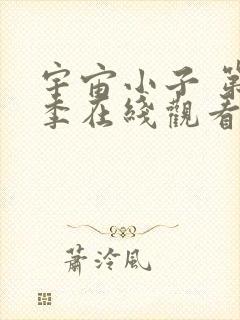 宇宙小子 第
季在綫觀看
蕭泠風